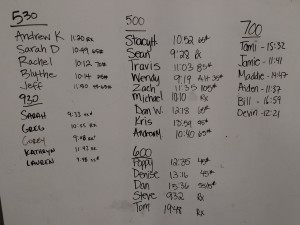 530
Andrew K 11:20 RX
Sarah D 10:49 65#
Rachel 10:12
Blythe 10:14
Jeff 11:50
930
SARAH 9:33
GREG 10:55
Corey 9:08
KATHRYN 11:43
LAUREN 9:48
500
Stacy H 10:52 65#
Sean 9:28 RX
Travis 11:03 85#
Wendy 9:19
Zach 11:35 105#
Michael RX
Dan W. 12:18
Kris 13:59 95#
Anthony 10:40 65#
600
Poppy 12:35 45#
Denise 13:16 45#
Dan 15:36
Steve 9:32 RX
Tom 19:48 RX
700
Tami - 15:32
Jamie - 11:41
Maddie - 14:47
Aiden - 11:57
Bill - 16:59
Devin - 12:21